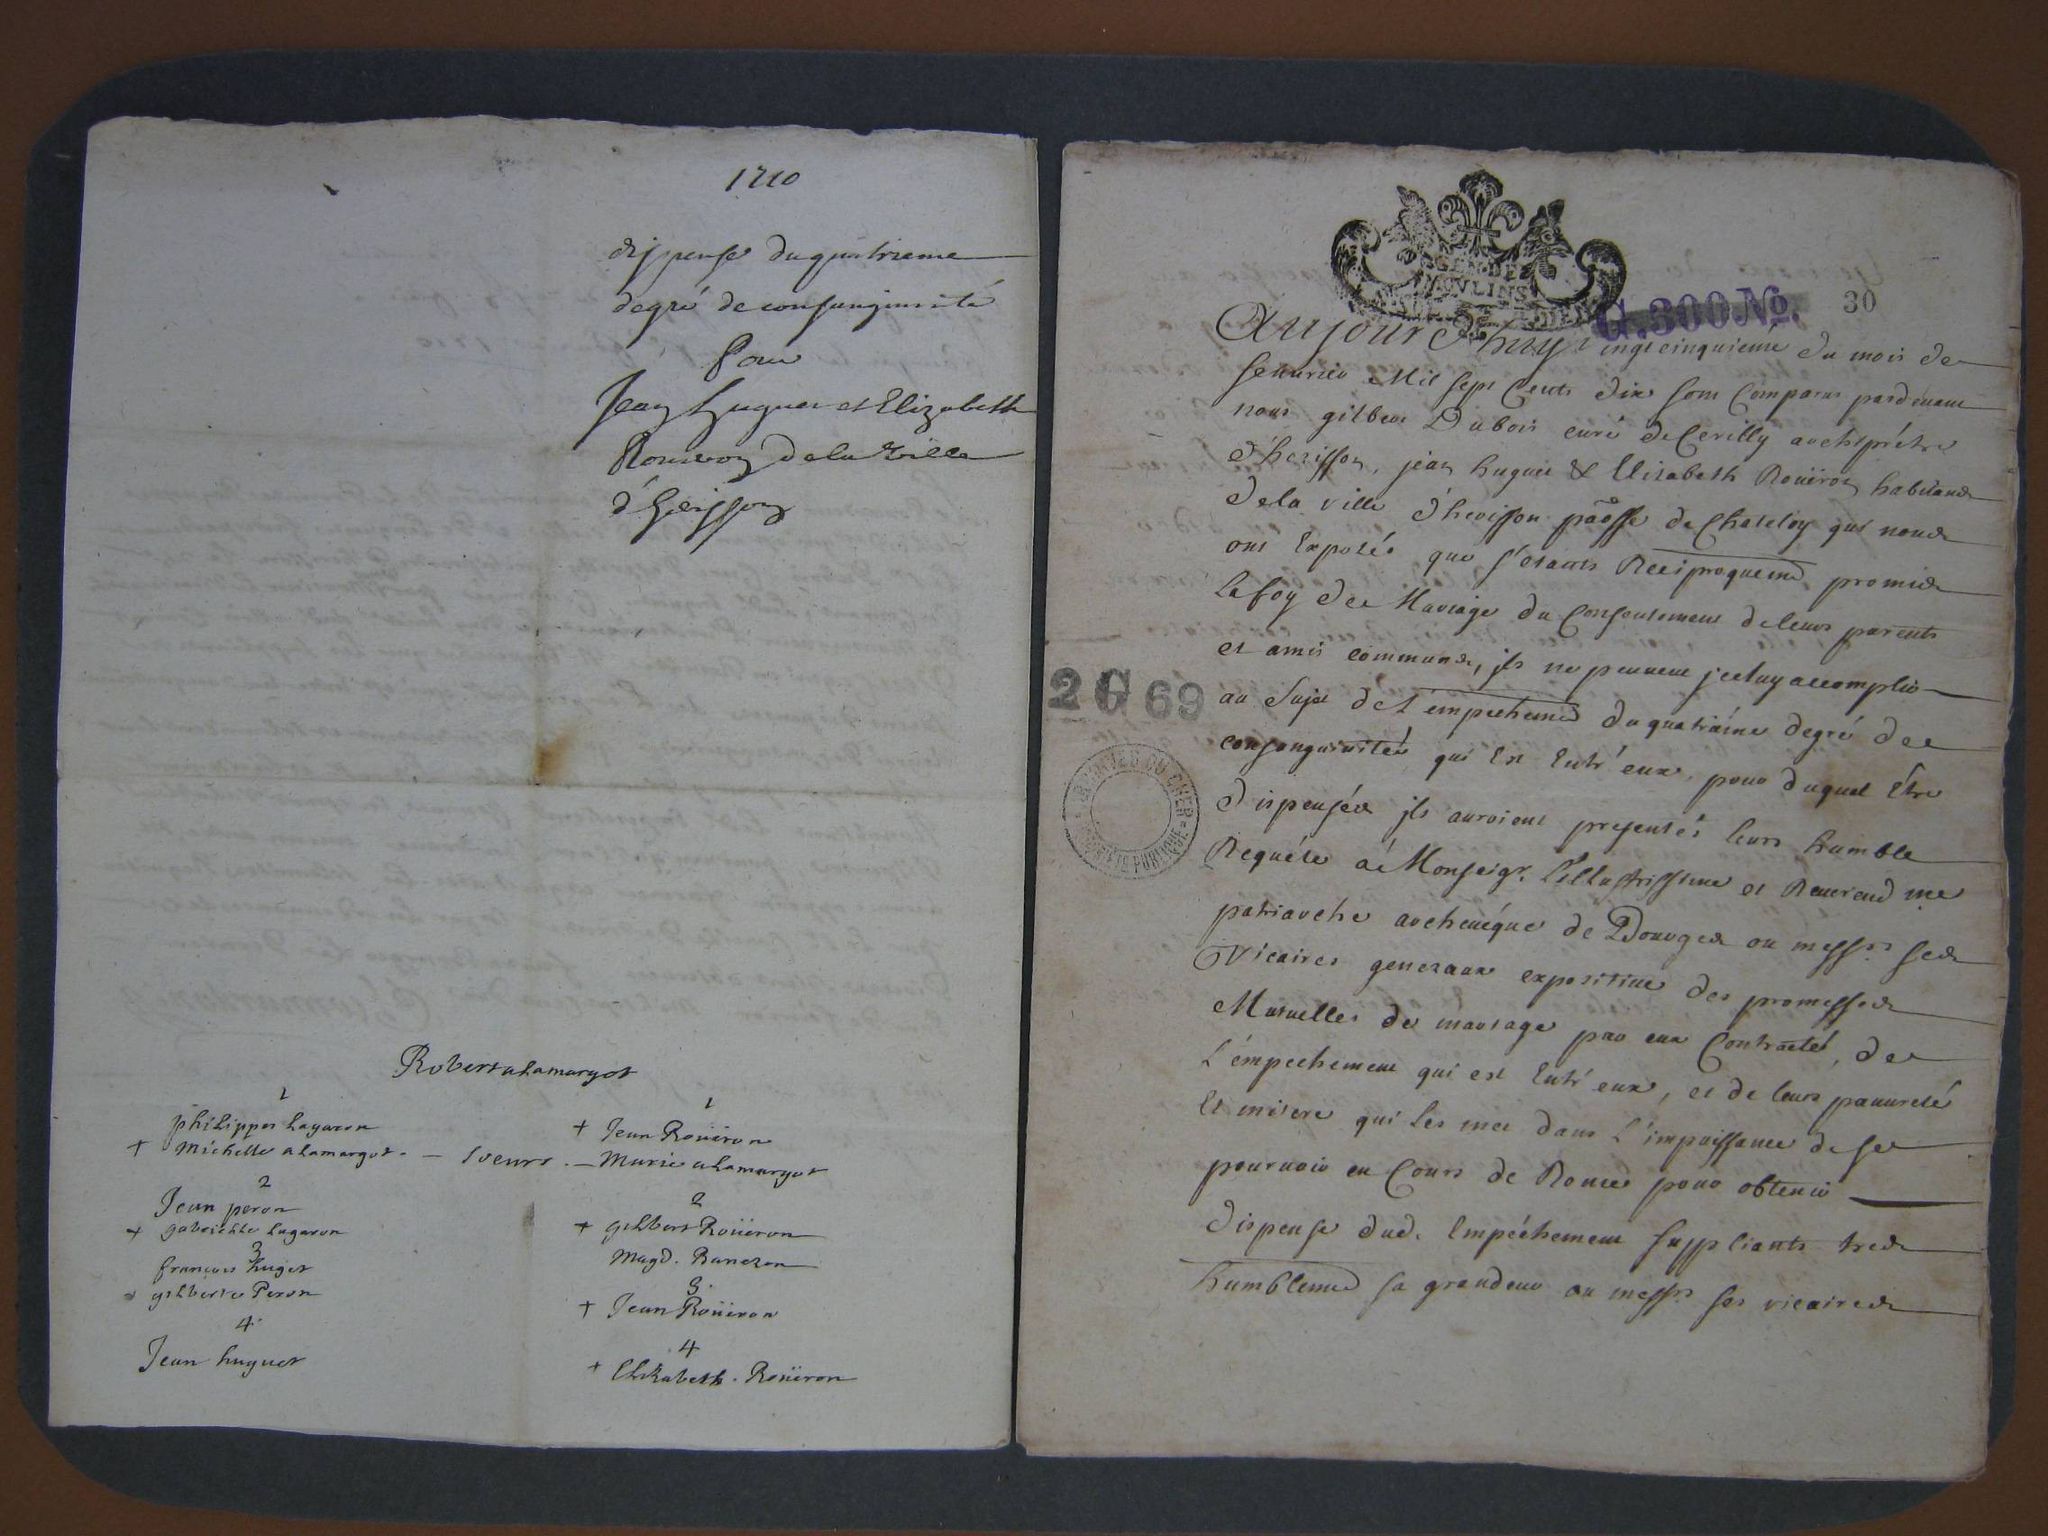 1710
dispense du quatrieme
degré de consanguinité
pour
Jean huguet et Elizabeth
Roueron de la ville
d'herisson
Robert alamargot
1
philippes lagaron
+ Michelle alamargot - soeurs - Marie alamargot
1
+ Jean Roüeron
2
Jean peron
+ gabrielle lagaron
2
+ gilbert Roüeron
Magd. Banchon
3
françois huget
+ gilberte Peron
3.
+ Jean Roüeron
4
Jean huguet
4
+ Elizabeth. Roüeron
GEN DE
MOVLINS
G.300 No. 30
Aujourd'huy vingtcinquieme du mois de
feuurier Mil sept Cents dix sont Comparus pardeuant
nous gilbert Dubois curé de Cerilly archiprétre
d'herisson, jean huguet & Elisabeth Roüeron habitans
de la ville d'herisson pãosse de Chateloy qui nous
ont Exposés que s'étants Reciproquemt promis
la foy de Mariage du Consentement de leurs parents
et amis communs, ils ne peuuent jceluy accomplir
au sujet de L'empechemt du quatriéme degré de
consanguinitée qui Est Entr'eux, pour duquel Être
dispensés jls auroient presentés leurs humble
Requéte à Monseigr. L'illustrissime et Reuerendme
patriarche archeuéque de Bourges ou messrs ses
Vicaires generaux expositiue des promesses
Mutuelles de mariage par eux Contracté, de
l'émpechement qui est Entr'eux, et de leurs pauureté
Et misere qui les met dans l'impuissance de se
pouruoir en Cours de Rome pour obtenir
dispense dud. Empéchement suppliants tres
humblemt sa grandeur ou messrs ses vicaires
2 G 69
ARCHIVES DU CHER
PROPRIÉTÉ PUBLIQUE